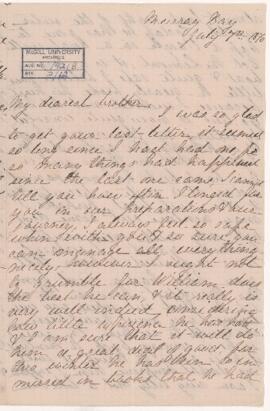 Murray Bay
July 7th
McGILL UNIVERSITY
ARCHIVES
ACC. NO.
REF.
My dearest brother,
I was so glad
to get your last letter, it seemed
so long since I had had one,
so many things had happened
since the last one came, I cannot
tell you how often I longed for
you in our preparations & our
journey, I always feel so safe
when with you & so sure you
can manage all everything
nicely, however I ought not
to grumble for William does
the best he can, & it really is
very well indeed considering
how little experience he has had
& I am sure that it will do
him a great deal of good for
this winter he has been so im-
mersed in books that he had